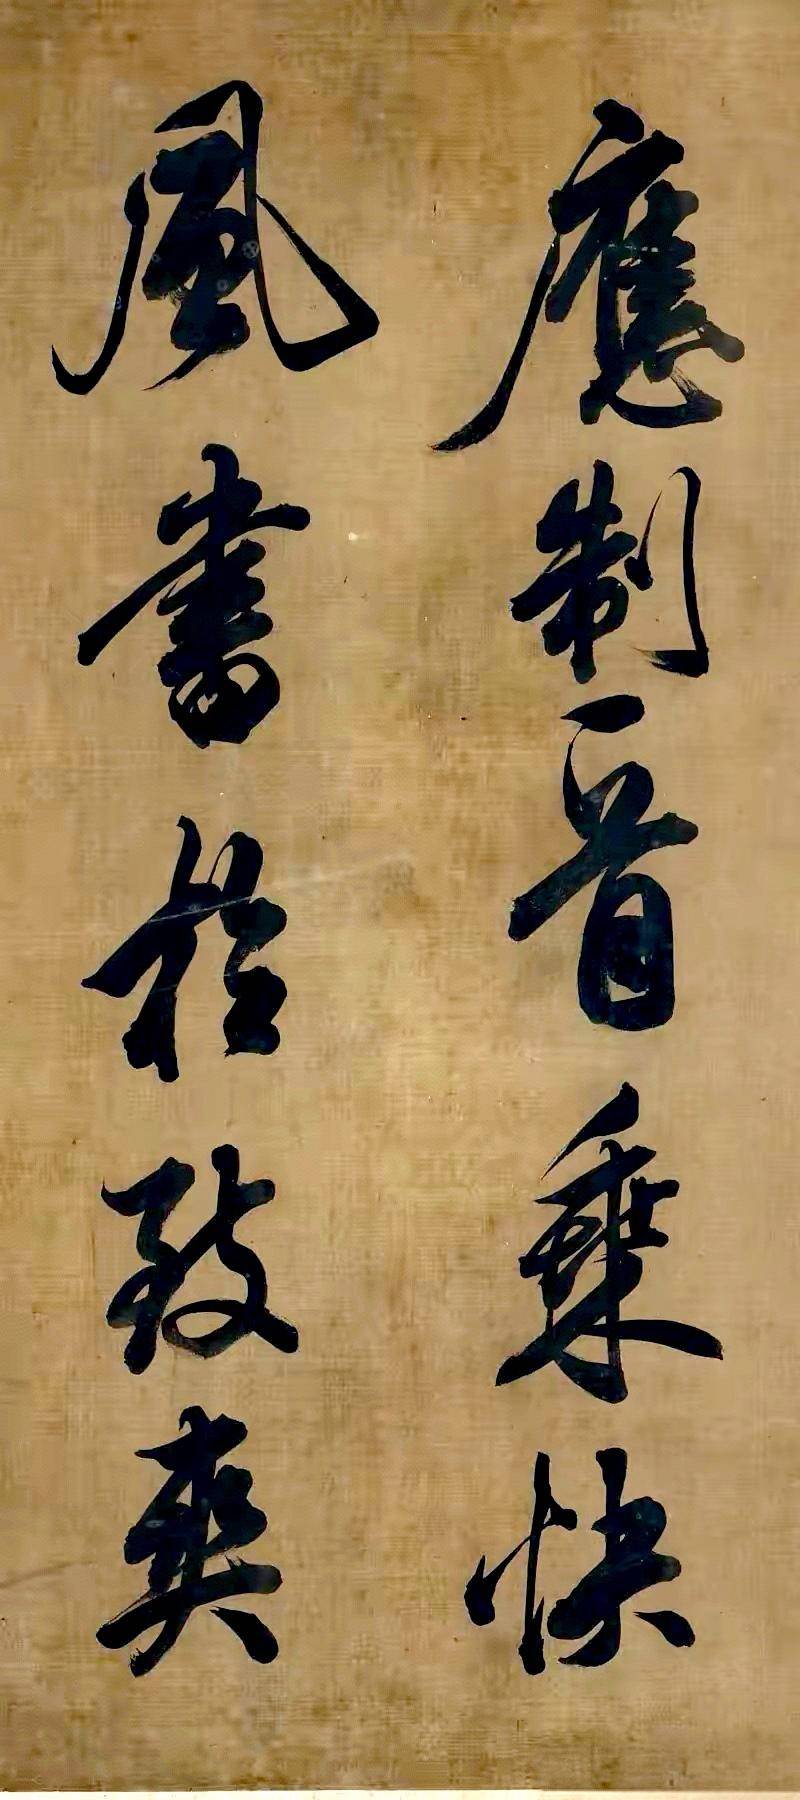 應制乘快
風書於致爽